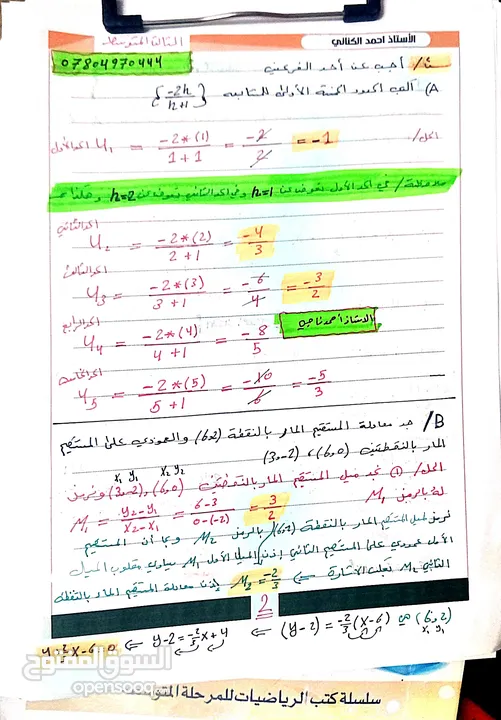 الأستاذ احمد الكناني
الثالث المتوسط
07804970444
أجب عن أحد الفرعين
A) اكتب الحدود الخمسة الأولى للمتتابعة {-2n / n+1}
الحل/ الحد الأول U1 = -2*(1) / 1+1 = -2/2 = -1
ملاحظة / في الحد الأول نعوض عن n=1 وفي الحد الثاني نعوض عن n=2 وهكذا
الحد الثاني
U2 = -2*(2) / 2+1 = -4/3
الحد الثالث
U3 = -2*(3) / 3+1 = -6/4 = -3/2
الحد الرابع
U4 = -2*(4) / 4+1 = -8/5
الاستاذ احمد ناجي
الحد الخامس
U5 = -2*(5) / 5+1 = -10/6 = -5/3
B/ جد معادلة المستقيم المار بالنقطة (6,2) والعمودي على المستقيم
المار بالنقطتين (6,0)، (3,-2)
x1 y1 x2 y2
الحل / ① نجد ميل المستقيم المار بالنقطتين (6,0)، (3,-2) ونرمز
له بالرمز M1
M1 = y2-y1 / x2-x1 = 6-3 / 0-(-2) = 3/2
نرمز لميل المستقيم المار بالنقطة (6,2) بالرمز M2 وبما أن المستقيم
الأول عمودي على المستقيم الثاني إذن الميل الأول M1 يساوي مقلوب الميل
الثاني M2 بعكس الاشارة ⇐ M2 = -2/3 إذن معادلة المستقيم المار بالنقطة
2
(6,2) هي (y-2) = -2/3 (x-6) ⇐ y-2 = -2/3 x+4 ⇐
x1 y1
السوق المفتوح
opensooq
سلسلة كتب الرياضيات للمرحلة